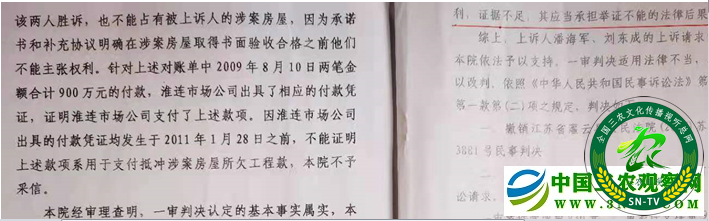 该两人胜诉，也不能占有被上诉人的涉案房屋，因为承诺
书和补充协议明确在涉案房屋取得书面验收合格之前他们
不能主张权利。针对上述对账单中 2009 年 8 月 10 日两笔金
额合计 900 万元的付款，淮连市场公司出具了相应的付款凭
证，证明淮连市场公司支付了上述款项。因淮连市场公司
出具的付款凭证均发生于 2011 年 1 月 28 日之前，不能证明
上述款项系用于支付抵冲涉案房屋所欠工程款，本院不予
采信。
本院经审理查明，一审判决认定的基本事实属实，本
利，证据不足，其应当承担举证不能的法律后果
综上，上诉人潘海军、刘东成的上诉请求
本院依法予以支持。一审判决适用法律不当，
以改判。依照《中华人民共和国民事诉讼法》第
第一款第（二）项之规定，判决如
一、撤销江苏省灌云
3881 号民事判决
讼请求。
全国三农文化传播视听总网
农
SN-TV
中国三农观察网